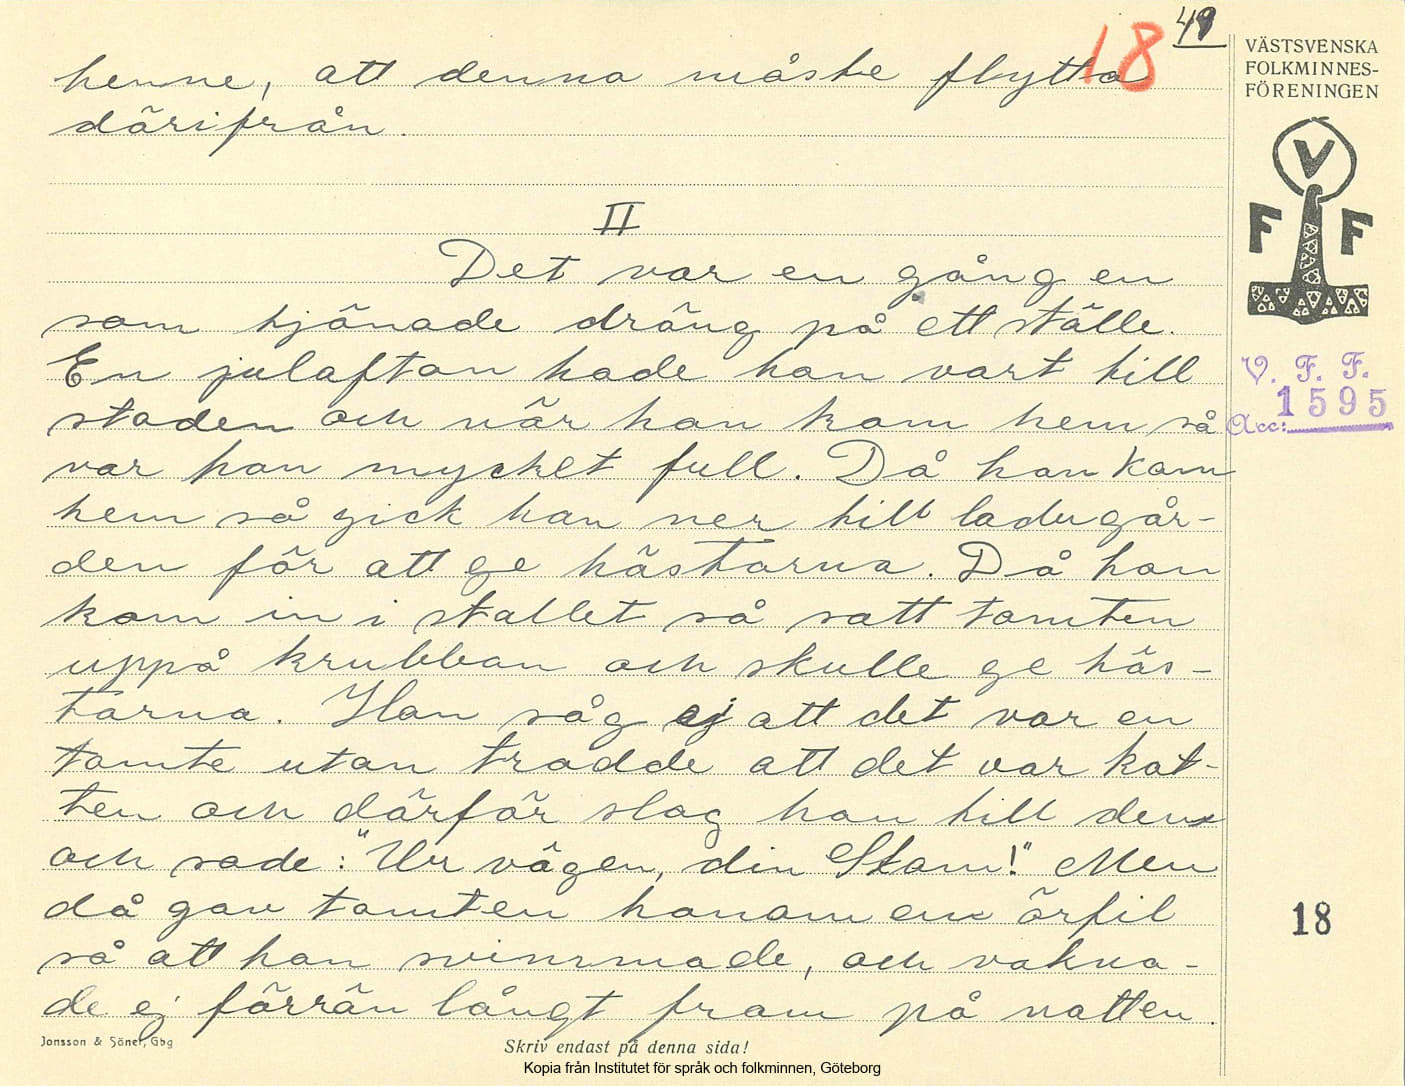 49
18
VÄSTSVENSKA
FOLKMINNES-
FÖRENINGEN
V
F F
V. F. F.
1595
Acc:
henne, att denna måste flytta
därifrån.
II
Det var en gång en
som tjänade dräng på ett ställe.
En julafton hade han vart till
staden och när han kom hem så
var han mycket full. Då han kom
hem så gick han ner till ladugår-
den för att ge hästarna. Då han
kom in i stallet så satt tomten
uppå krubban och skulle ge häs-
tarna. Han såg ej att det var en
tomte utan trodde att det var kat-
ten och därför slog han till den
och sade: "Ur vägen, din Skam!" Men
då gav tomten honom en örfil
så att han svimmade, och vakna-
de ej förrän långt fram på natten.
18
Jonsson & Söner, Gbg
Skriv endast på denna sida!
Kopia från Institutet för språk och folkminnen, Göteborg